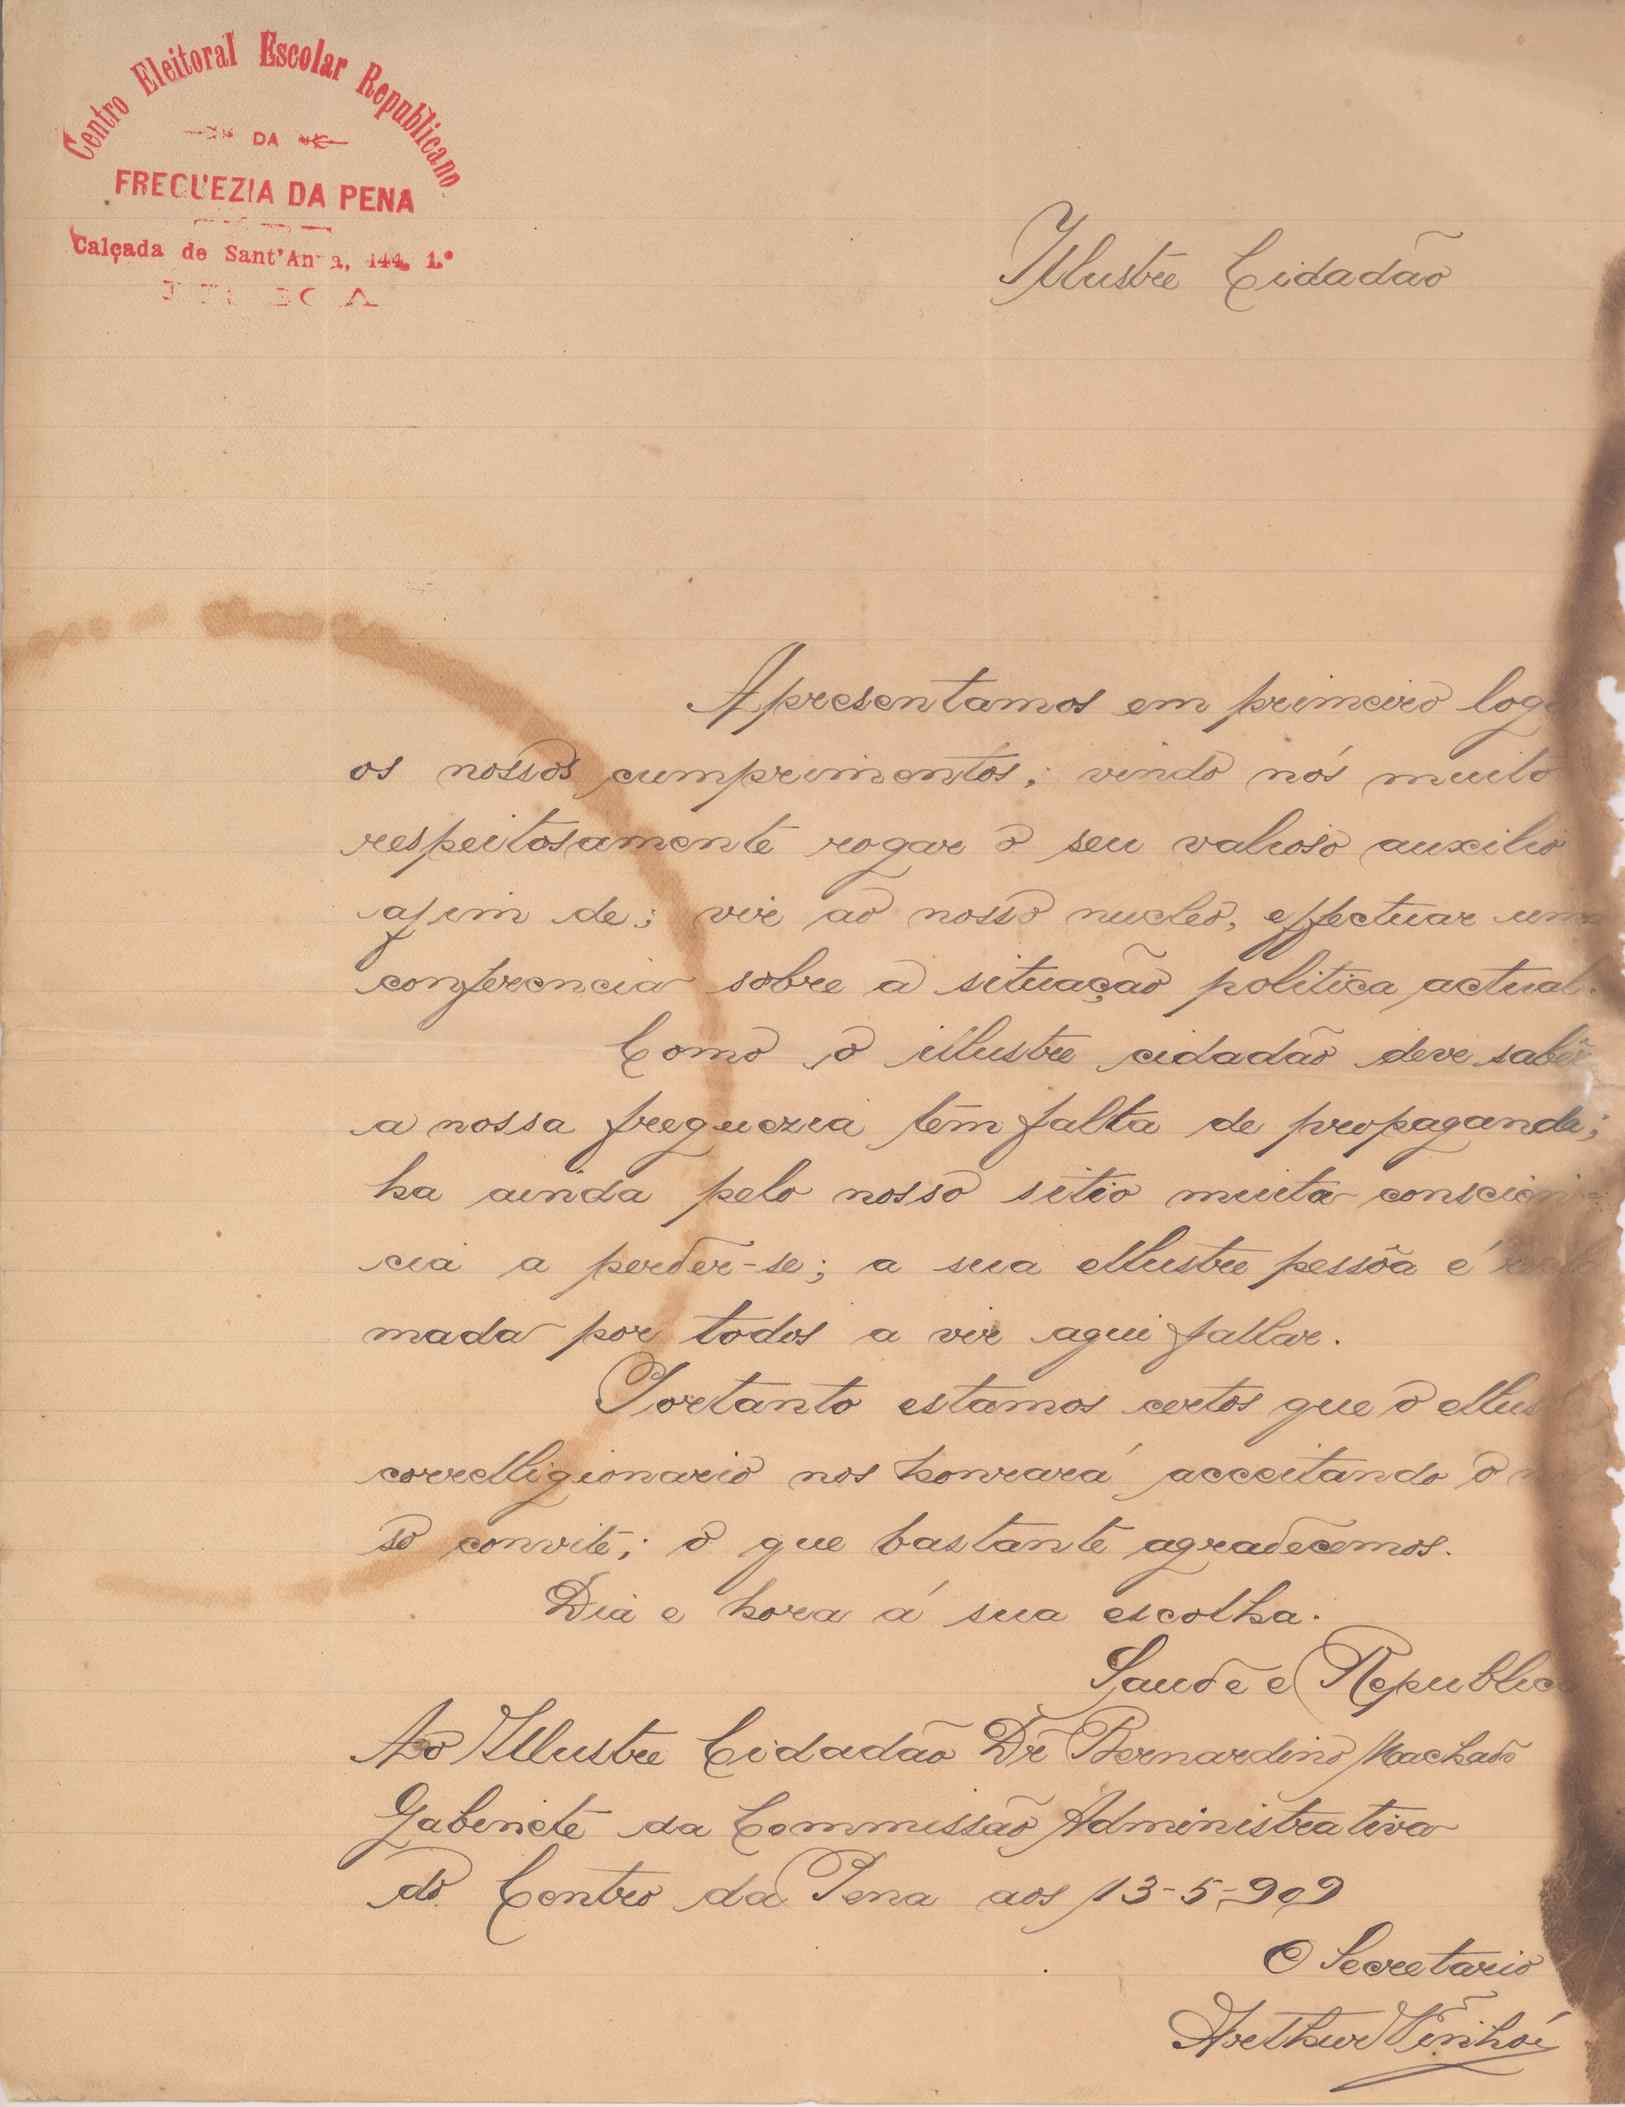 Centro Eleitoral Escolar Republicano
DA
FREGUEZIA DA PENA
Calçada de Sant'Anna, 144, 1.º
LISBOA
Illustre Cidadão
Apresentamos em primeiro log
os nossos cumprimentos; vindo nós muito
respeitosamente rogar o seu valioso auxilio
afim de; vir ao nosso nucleo, effectuar uma
conferencia sobre a situação politica actual.
Como o illustre cidadão deve saber
a nossa freguezia têm falta de propaganda;
ha ainda pelo nosso sitio muita conscien-
cia a perder-se; a sua illustre pessôa é
mada por todos a vir aqui fallar.
Portanto estamos certos que o illus
correlligionario nos honrará acceitando o
so convite; o que bastante agradecemos.
Dia e hora á sua escolha.
Saude e Republica
Ao Illustre Cidadão Dr Bernardino Machado
Gabinete da Commissão Administrativa
do Centro da Pena aos 13-5-909
O Secretario
Arthur